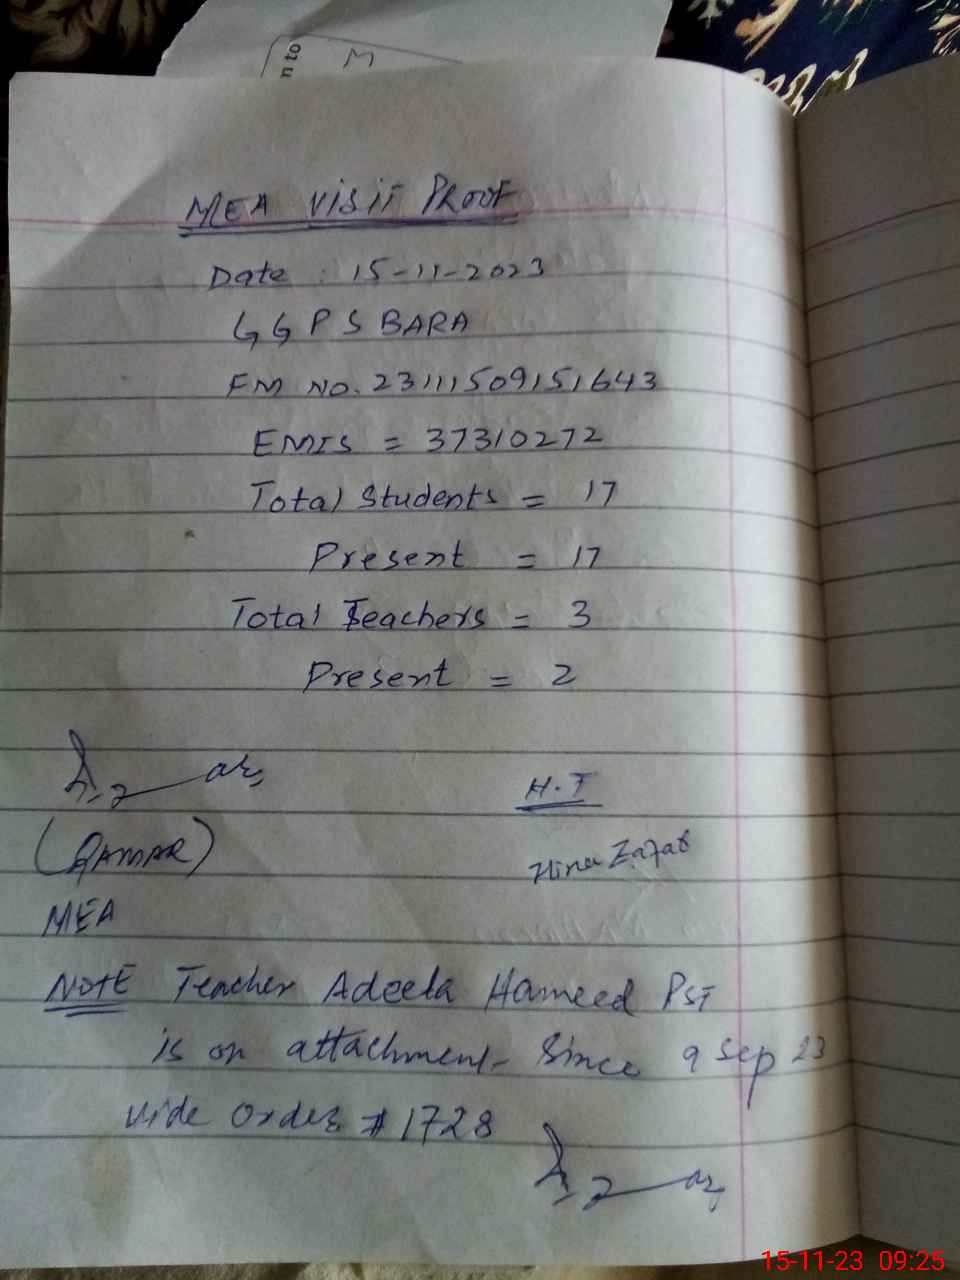 n to
M
MEA VISIT PROOF
Date : 15-11-2023
GGPS BARA
FM NO. 23111509151643
EMIS = 37310272
Total Students = 17
Present = 17
Total Teachers = 3
Present = 2
H.T
(QAMAR)
Hina Zafar
MEA
NOTE Teacher Adeela Hameed PST
is on attachment - Since 9 Sep 23
vide order # 1728
15-11-23 09:25